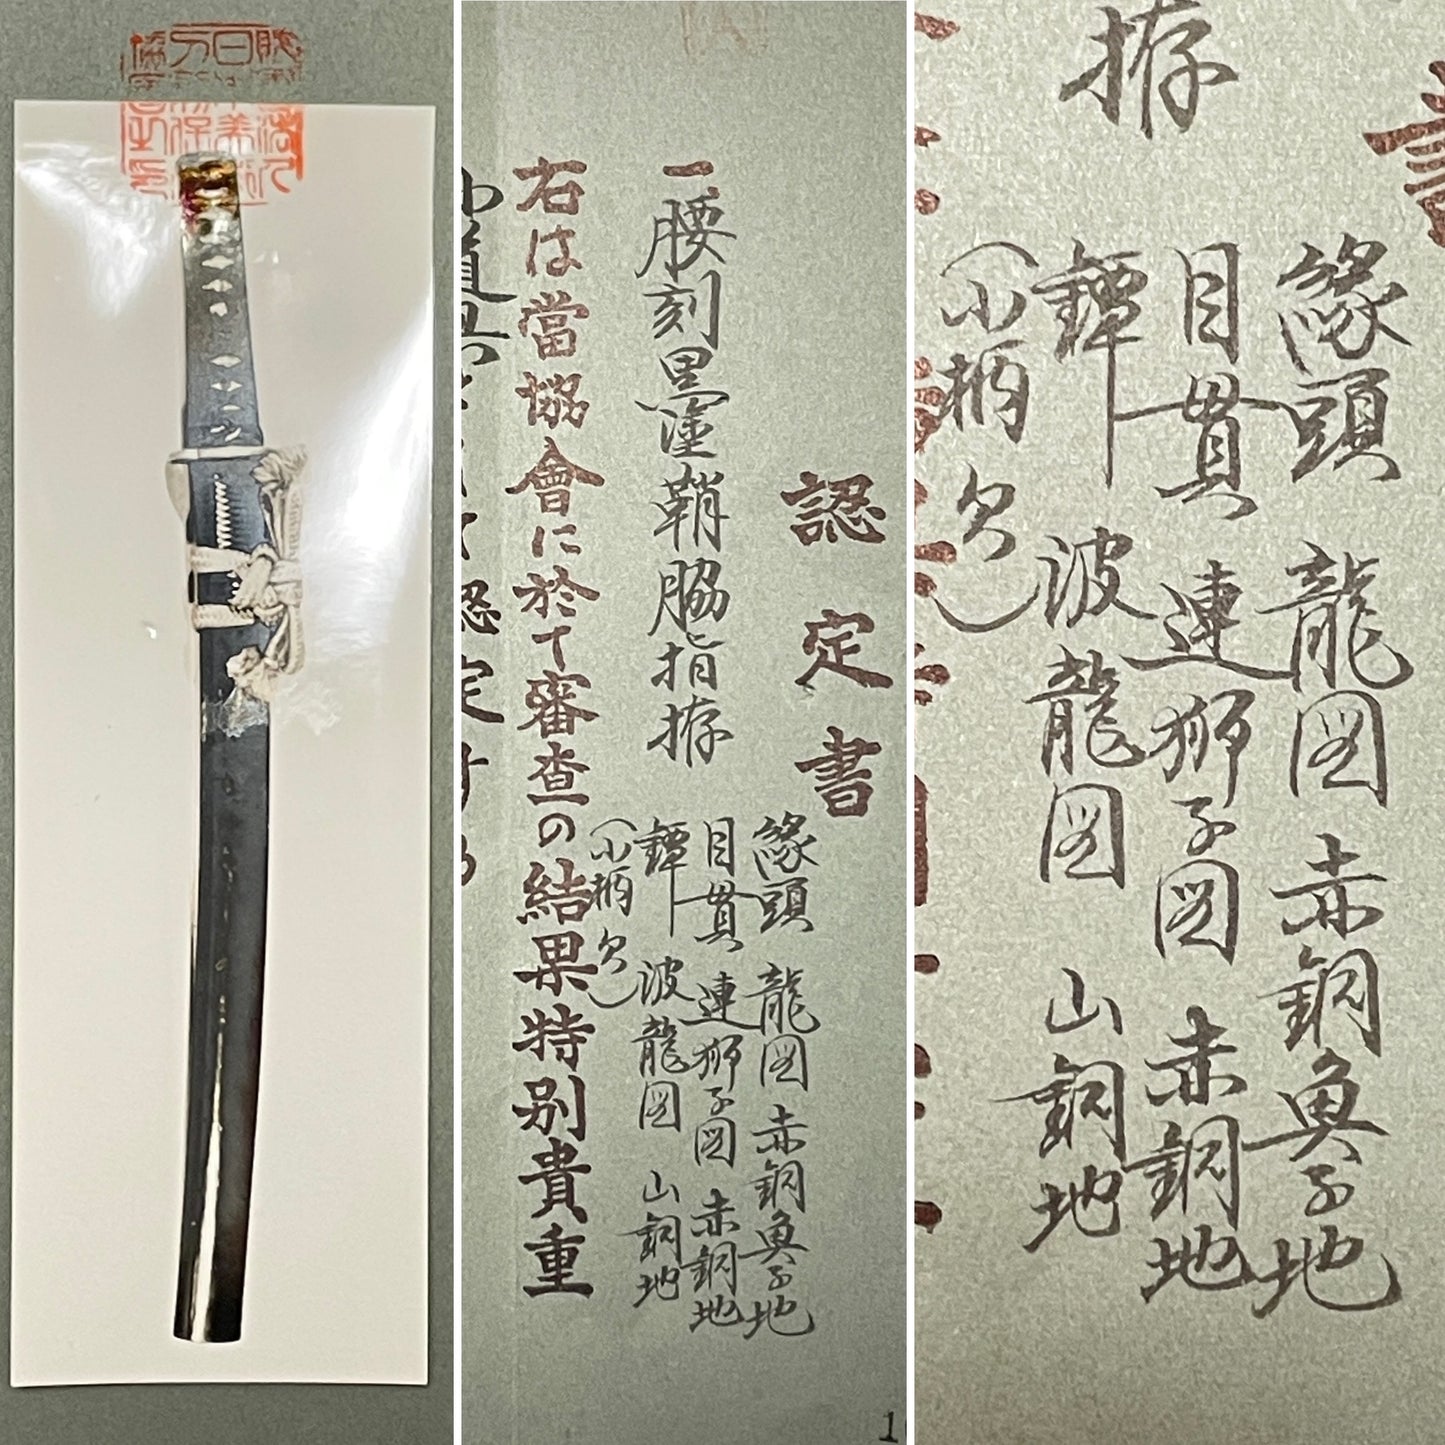 認定書
一、腰刻黒塗鞘脇指拵
縁頭 龍図 赤銅魚子地
目貫 連獅子図 赤銅地
鐔 波龍図 山銅地
（小柄欠）
右は當協會に於て審査の結果特別貴重
拵
縁頭 龍図 赤銅魚子地
目貫 連獅子図 赤銅地
鐔 波龍図 山銅地
（小柄欠）